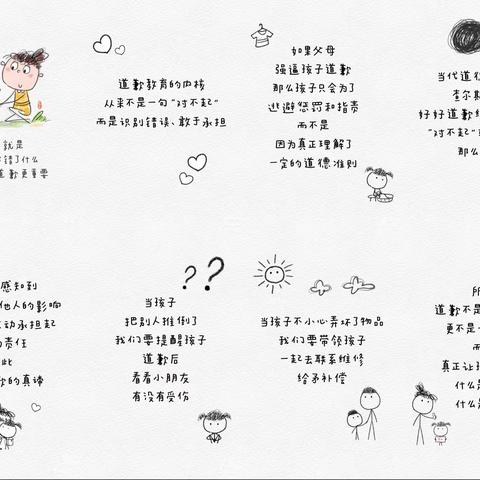 就是
错了什么
道歉更重要
道歉教育的内核
从来不是一句“对不起”
而是识别错误、敢于承担
如果父母
强逼孩子道歉
那么孩子只会为了
逃避惩罚和指责
而不是
因为真正理解了
一定的道德准则
当代道
查尔
好好道歉
“对不起”
那么
感知到
他人的影响
动承担起
责任
此
歉的真谛
当孩子
把别人推倒了
我们要提醒孩子
道歉后
看看小朋友
有没有受伤
当孩子不小心弄坏了物品
我们要带领孩子
一起去联系维修
给予补偿
所
道歉不是
更不是一
而
真正让孩
什么是
什么是